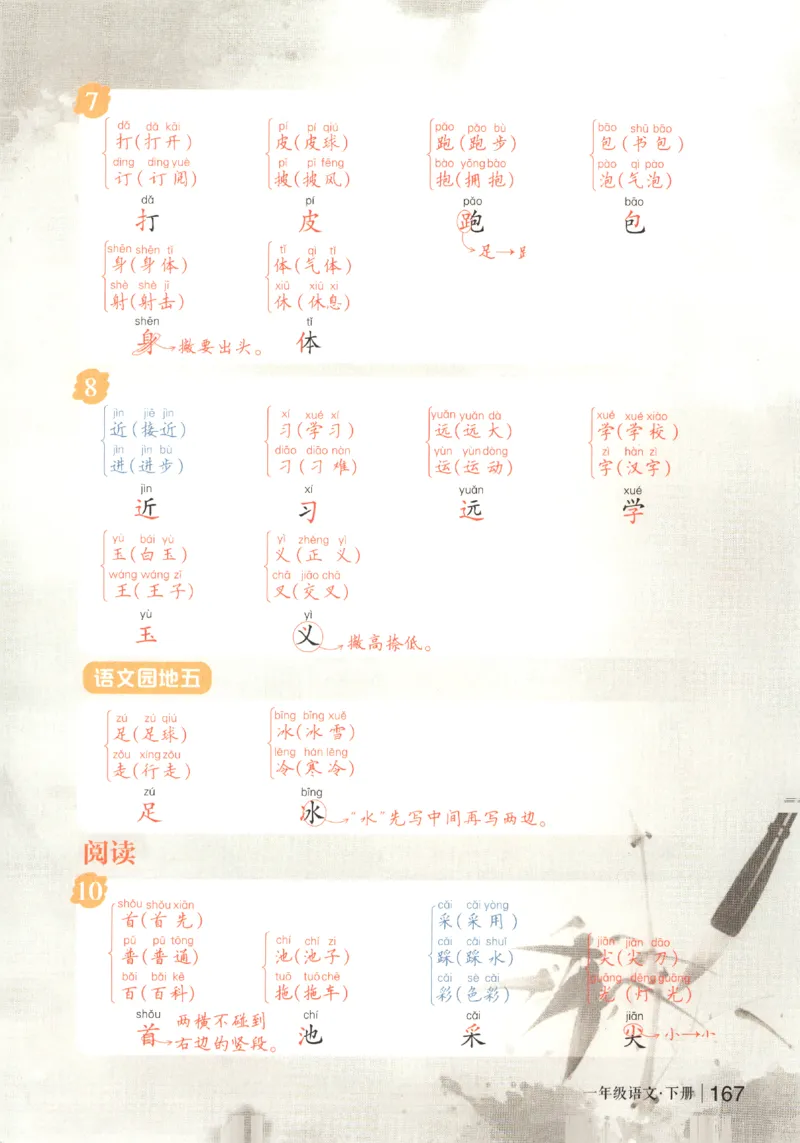 7
dǎ dǎ kāi pí pí qiú pǎo pǎo bù bāo shū bāo
打(打开) 皮(皮球) 跑(跑步) 包(书包)
dìng dìng yuè pī pī fēng bào yōng bào pào qì pào
订(订阅) 披(披风) 抱(拥抱) 泡(气泡)
dǎ pí pǎo bāo
打 皮 跑 包
足→⻊
shēn shēn tǐ tǐ qì tǐ
身(身体) 体(气体)
shè shè jī xiū xiū xi
射(射击) 休(休息)
shēn tǐ
身→撇要出头。 体
8
jìn jiē jìn xí xué xí yuǎn yuǎn dà xué xué xiào
近(接近) 习(学习) 远(远大) 学(学校)
jìn jìn bù diāo diāo nàn yùn yùn dòng zì hàn zì
进(进步) 刁(刁难) 运(运动) 字(汉字)
jìn xí yuǎn xué
近 习 远 学
yù bái yù yì zhèng yì
玉(白玉) 义(正义)
wáng wáng zǐ chā jiāo chā
王(王子) 叉(交叉)
yù yì
玉 义→撇高捺低。
语文园地五
zú zú qiú bīng bīng xuě
足(足球) 冰(冰雪)
zǒu xíng zǒu lěng hán lěng
走(行走) 冷(寒冷)
zú bīng
足 冰→“水”先写中间再写两边。
阅读
10
shǒu shǒu xiān cǎi cǎi yòng
首(首先) 采(采用)
pǔ pǔ tōng chí chí zi cǎi cǎi shuǐ jiān jiān dāo
普(普通) 池(池子) 踩(踩水) 尖(尖刀)
bǎi bǎi kē tuō tuō chē cǎi sè cǎi guāng dēng guāng
百(百科) 拖(拖车) 彩(色彩) 光(灯光)
shǒu chí cǎi jiān
首→两横不碰到右边的竖段。 池 采 尖→小→⺌
一年级语文·下册 167